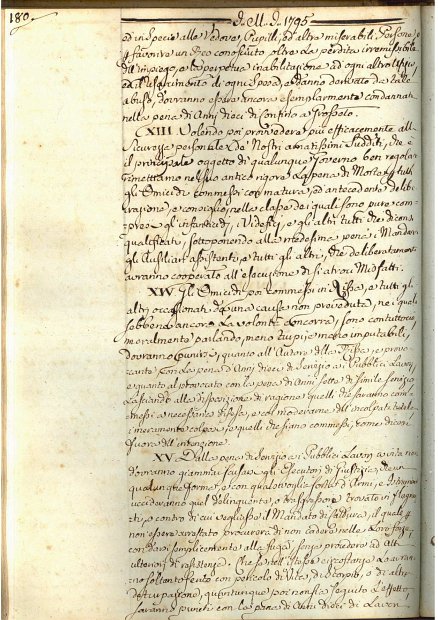 180.
d. M. d. 1795
ed in specie alle Vedove, Pupilli, ed altre miserabili Persone, o
favorire un Reo conosciuto oltre la perdita irremissibile
dell'impiego, e perpetua inabilitazione ad ogni altro
ed il risarcimento di ogni spesa, e danno derivato da tale
abuso, dovranno essere ancora esemplarmente condannati
nella pena di Anni dieci di Confino a Grosseto.
XIII Volendo poi provvedere più efficacemente alla
Sicurezza personale De' Nostri amatissimi Sudditi, che è
il principale oggetto di qualunque Governo ben regolato
rimettiamo nel suo antico rigore La pena di Morte per tutti
gli Omicidi commessi con matura, ed antecedente delibe
razione, e conosciuto, nella classe dei quali sono pure com
prese gl'infanticidj, Veneficj, e gli altri tutti che diconsi
qualificati, sottoponendo alla medesima pena i Mandanti
gli Ausiliari assistenti, e tutti gli altri, che deliberatamente
avranno cooperato all'esecuzione di sì atroci Misfatti.
XIV Gli Omicidj poi commessi in Rissa, e tutti gli
altri occasionati da una causa non proveduta, ne i quali
sebbene ancora La volontà concorra, sono contuttociò
moralmente parlando, meno turpi, e meno imputabili,
dovranno punirsi, quanto all'Autore della Rissa, e provo
cante con La pena di Anni dieci di Servizio ai Pubblici Lavori,
e quanto al provocato con la pena di Anni sette di simile servizio
Lasciando alla disposizione di ragione quelli che saranno com
messi a necessaria difesa, e con moderame dell'incolpata tutela
i meramente colposi, e quelli che siano commessi, come dicesi
fuora dell'intenzione.
XV. Dalla pena di servizio ai Pubblici Lavori a vita non
dovranno giammai scusarsi gli Esecutori di Giustizia, che in
qualunque forma, e con qualsivoglia sorta di Armi, e Istrumenti
uccideranno quel delinquente, o trasgressore trovato in flagran
ti, o contro di cui vegliasse il Mandato di Cattura, il quale p
non essere arrestato procurerà di non cadere nelle Loro forze
con darsi semplicemente alla fuga, senza procedere ad atti
ulteriori di resistenza. Che se nell'istesse circostanze Lo avran
no soltanto ferito con pericolo di Vita, di storpio, o di altro
detrupazione, quantunque poi non sia seguito L'effetto
saranno puniti con la pena di Anni dieci di Lavori